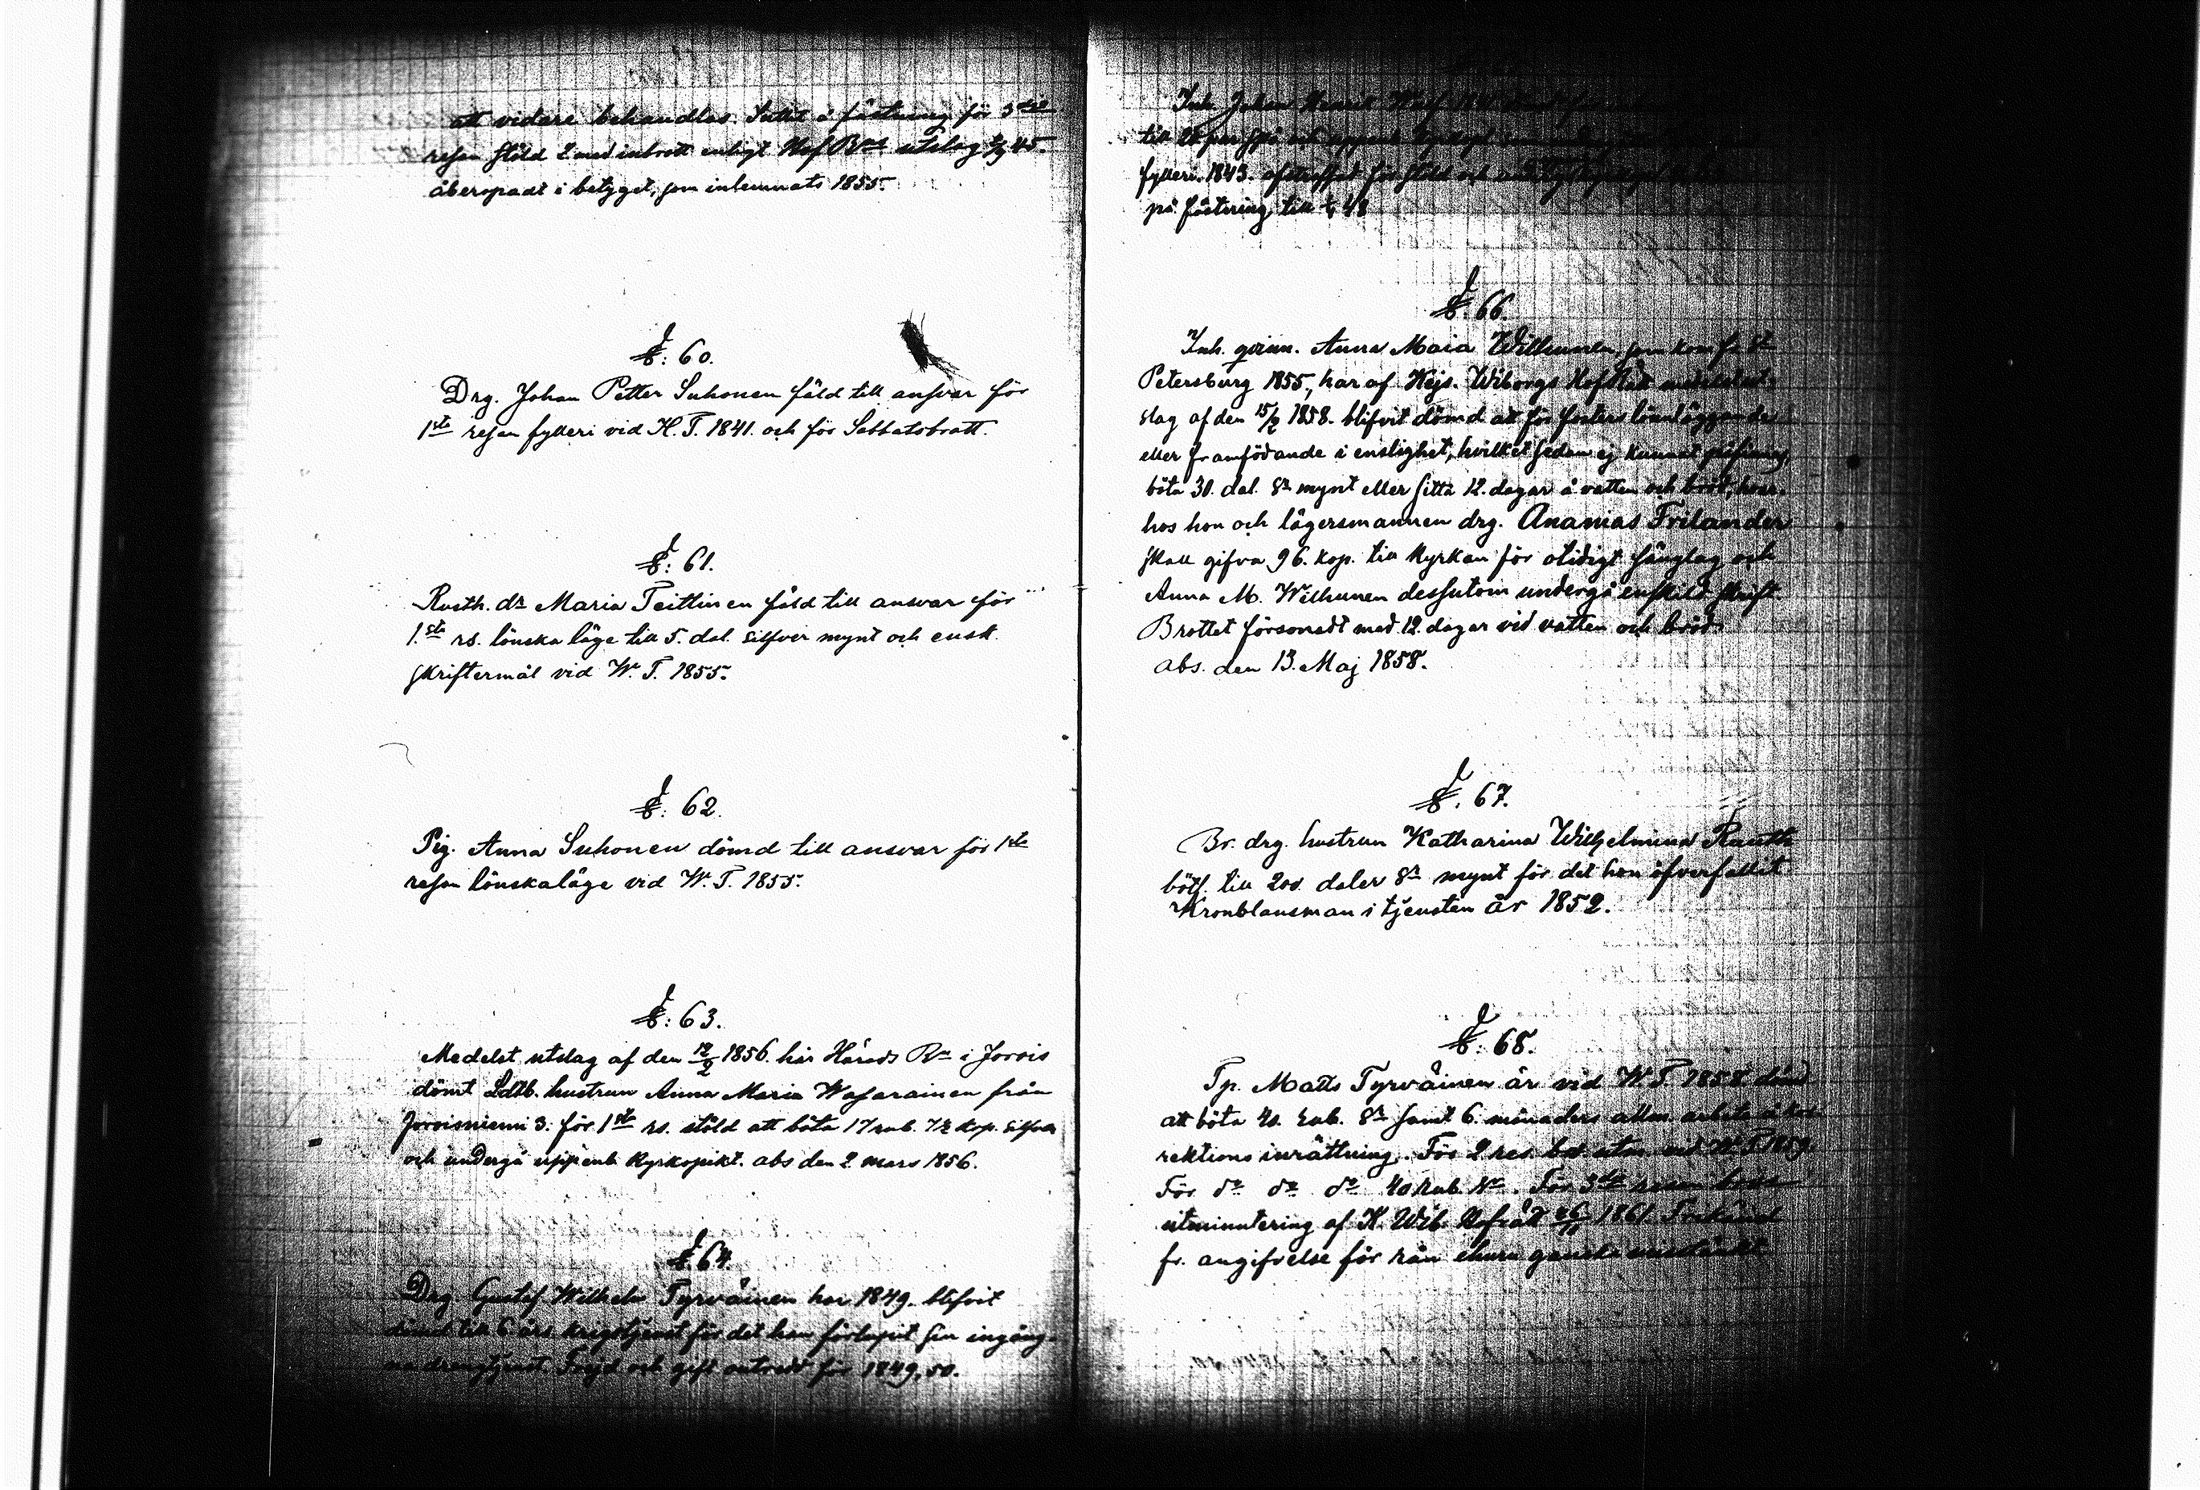 att vidare behandlas. Suttit å fästning för 3dje
resan stöld 2 med inbrott enligt Hof Rns utslag 45.
åberopadt i betyget, som inlemnats 1855.
§: 60.
Drg. Johan Petter Suhonen fäld till ansvar för
1sta resan fylleri vid H. T. 1841. och för Sabbatsbrott.
§: 61.
Rusth. dr Maria Teittinen fäld till ansvar för
1.sta rs. lönska läge till 5. dal. silfver mynt och ensk.
skriftermål vid W. T. 1855.
§: 62.
Pig. Anna Suhonen dömd till ansvar för 1sta
resan lönskaläge vid W. T. 1855.
§: 63.
Medelst utslag af den 19/2 1856. här Härads Rn i Jorois
dömt Ldtb. hustrun Anna Maria Wasarainen från
Joroisniemi 3. för 1sta rs. stöld att böta 17 rub. 72 kop. silfver
och undergå uppenb. kyrkoplikt. abs den 2 mars 1856.
§. 64.
Drg Gustaf Wilhelm Tyrväinen har 1849. blifvit
dömd till 6 års krigstjenst för det han förlupit sin ingång-
na drengtjenst. Frejd och gift outredt för 1849, 50.
Inh. Johan
till
fylleri. 1843. afstraffad för stöld och
på fästning till 48
§. 66.
Inh. qvinn. Anna Maia Wilhunen, som kom fr. St.
Petersburg 1855, har af Kejs. Wiborgs HofRätt medelst ut-
slag af den 15/2 1858. blifvit dömd att för fosters lönnläggande
eller framfödande i enslighet, hvilket sedan ej kunnat påfinnas,
böta 30. dal. Sr mynt eller sitta 12. dagar å vatten och bröd, hvar-
hos hon och lägersmannen drg. Ananias Frilander
skall gifva 96. kop. till kyrkan för otidigt sänglag och
Anna M. Wilhunen dessutom undergå enskild skrift.
Brottet försonadt med 12. dagar vid vatten och bröd.
abs. den 13. Maj 1858.
§. 67.
Br. drg. hustrun Katharina Wilhelmina Rauth
bötf. till 200. daler Sr mynt för det hon öfverfallit
Kronolänsman i tjensten år 1852.
§. 68.
Tp. Matts Tyrväinen är vid W T 1858 dömd
att böta 40. Rub. Sr samt 6. månaders allm. arbete å kor-
rektions inrättning. För 2 res. vid W. T 1859.
För do do do 40 Rub. Sr. För 3dje resan
utminutering af K. Wib. Hofrätt 26/11 1861.
fr. angifvelse för rån ehuru ganska